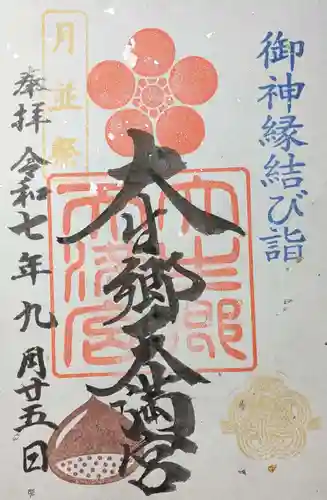 御神縁結び詣
大生郷天満宮
大生郷
天満宮
月並祭
奉拝 令和七年九月廿五日